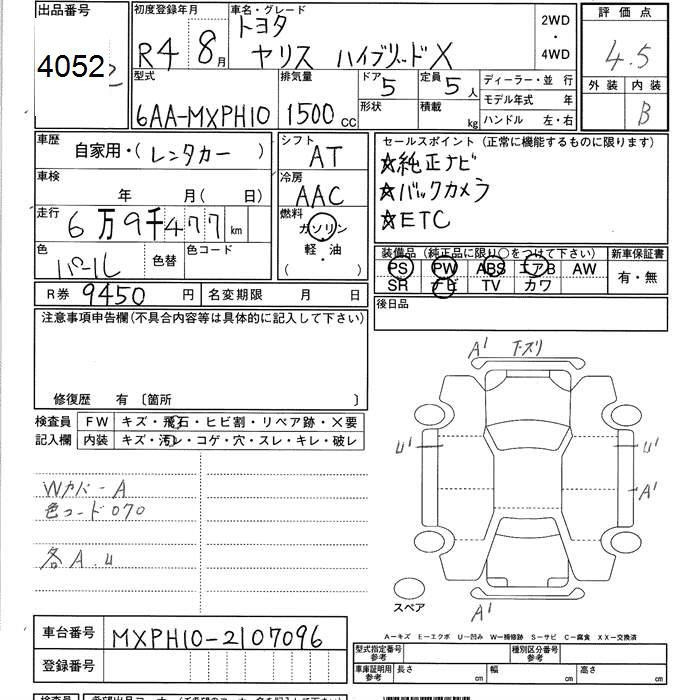 出品番号
4052
初度登録年月
R4 8月
車名・グレード
トヨタ
ヤリス ハイブリッドX
2WD
・
4WD
評価点
4.5
外装 内装
B
型式
6AA-MXPH10
排気量
1500 CC
ドア 5
形状
定員 5人
積載 kg
ディーラー・並 行
モデル年式 年
ハンドル 左・右
車歴
自家用・(レンタカー)
車検
年 月(日)
走行
6万9千477 km
色
パール
色替
色コード
シフト
AT
冷房
AAC
燃料
ガソリン
軽・油
( )
セールスポイント(正常に機能するものに限ります)
☆純正ナビ
☆バックカメラ
☆ETC
装備品(純正品に限り○をつけて下さい)
PS PW ABS エアB AW
SR ナビ TV カワ
新車保証書
有・無
R券 9450円
名変期限 月 日
後日品
注意事項申告欄(不具合内容等は具体的に記入して下さい)
修復歴 有 〔箇所 〕
検査員
記入欄
FW キズ・飛石・ヒビ割・リペア跡・X要
内装 キズ・汚レ・コゲ・穴・スレ・キレ・破レ
Wカバー A
色コード070
各A.U
A'下ズリ
U'
U'
A'
A'
スペア
車台番号
MXPH10-2107096
登録番号
A-キズ E-エクボ U-凹み W-補修跡 S-サビ C-腐食 XX-交換済
型式指定番号
参考
種別区分番号
参考
車庫証明用
参考
長さ cm
幅 cm
高さ cm